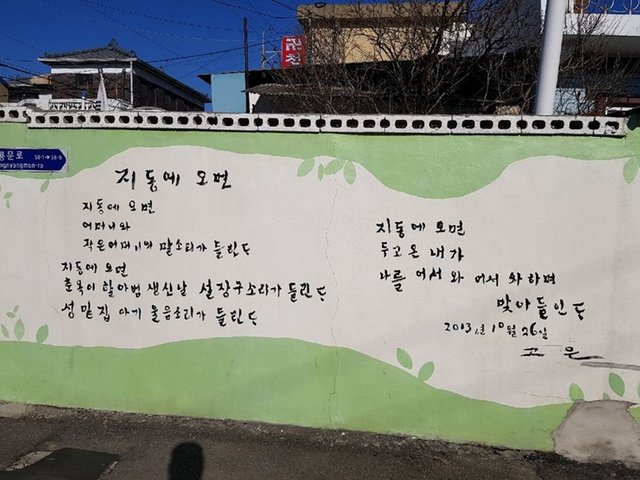 룡문로
ngnyongmun-ro
지동에 오면
지동에 오면
어머니와
작은어머니의 말소리가 들린다
지동에 오면
춘옥이 할아범 생신날 설장구소리가 들린다
성 밑 집 아기 울음소리가 들린다
지동에 오면
두고 온 내가
나를 어서 와 어서 와 하며
맞아들인다
2013년 10월 26일
고은